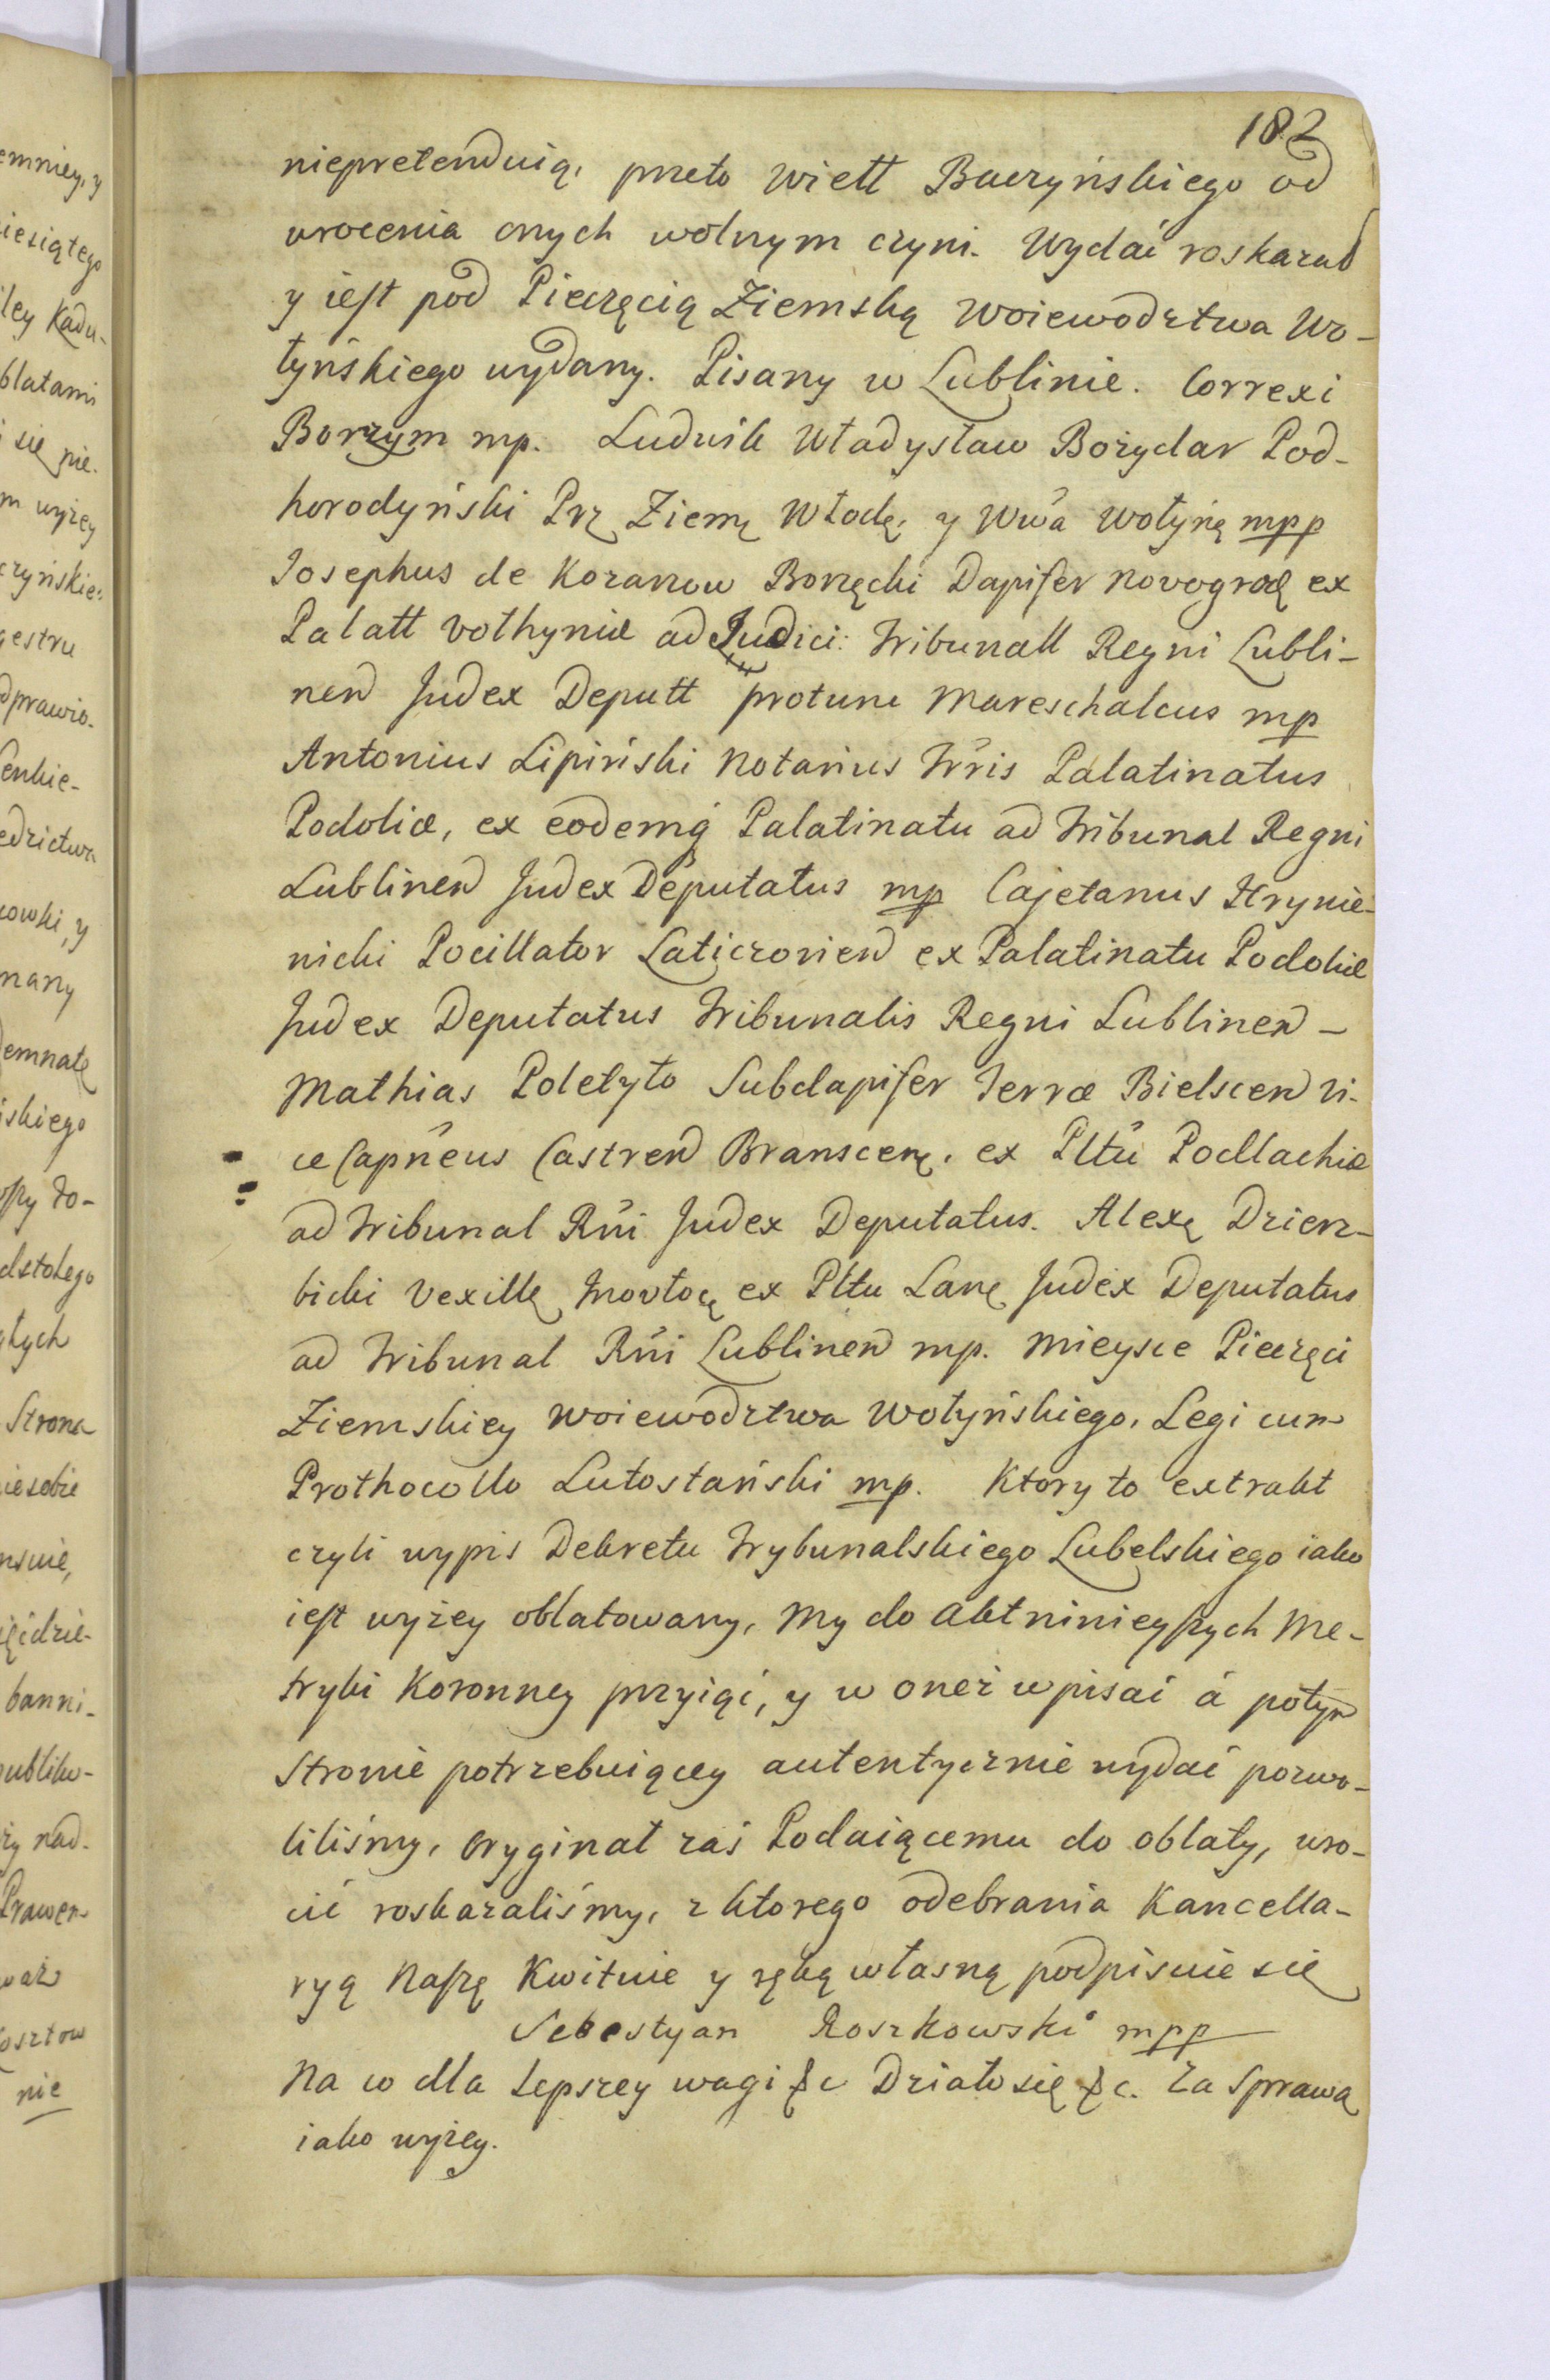 182
niepretenduią, przeto Wiett Baczyńskiego od
wrocenia onych wolnym czyni. Wydać roskazał
y iest pod Pieczęcią Ziemską Woiewodztwa Wo-
łyńskiego wydany. Pisany w Lublinie. Correxi
Borzym mp. Ludwik Władysław Bożydar Pod-
horodyński Prz Ziemę Włodę, y Wwa Wołynę mpp
Josephus de Kozarzow Borzęcki Dapifer Novogrodę ex
Palatt Volhyniæ ad Judici: Tribunall Regni Lubli-
nen Judex Deputt protunc Mareschalcus mp
Antonius Lipiński Notarius Trris Palatinatus
Podoliæ, ex eodemq Palatinatu ad Tribunal Regni
Lublinen Judex Deputatus mp Cajetanus Hrynie-
nicki Pocillator Laticzovien ex Palatinatu Podoliæ
Judex Deputatus Tribunalis Regni Lublinen –
Mathias Poletyło Subdapifer Terræ Bielscen Vi-
ce Capneus Castren Branscenę. ex Pltu Podlachiæ
ad Tribunal Rni Judex Deputatus. Alexę Dzierz-
bicki Vexillę ex Pltu Lanę Judex Deputatus
ad Tribunal Rni Lublinen mp. Mieysce Pieczęci
Ziemskiey Woiewodztwa Wołyńskiego. Legi cum
Prothocollo Lutostański mp. Ktory to extrakt
czyli wypis Dekretu Trybunalskiego Lubelskiego iako
iest wyżey oblatowany, My do Akt ninieyszych Me-
tryki Koronney przyiąć, y w oneż wpisać á potym
Stronie potrzebuiącey autentycznie wydać pozwo-
liliśmy, oryginał zaś Podaiącemu do oblaty, wro-
cić roskazaliśmy, z ktorego odebrania Kancella-
ryą Naszę Kwituie y ręką własną podpisuie się
Sebestyan Roszkowski mpp
Na co dla Lepszey wagi &c Działo się &c. Za Sprawą
iako wyżey.